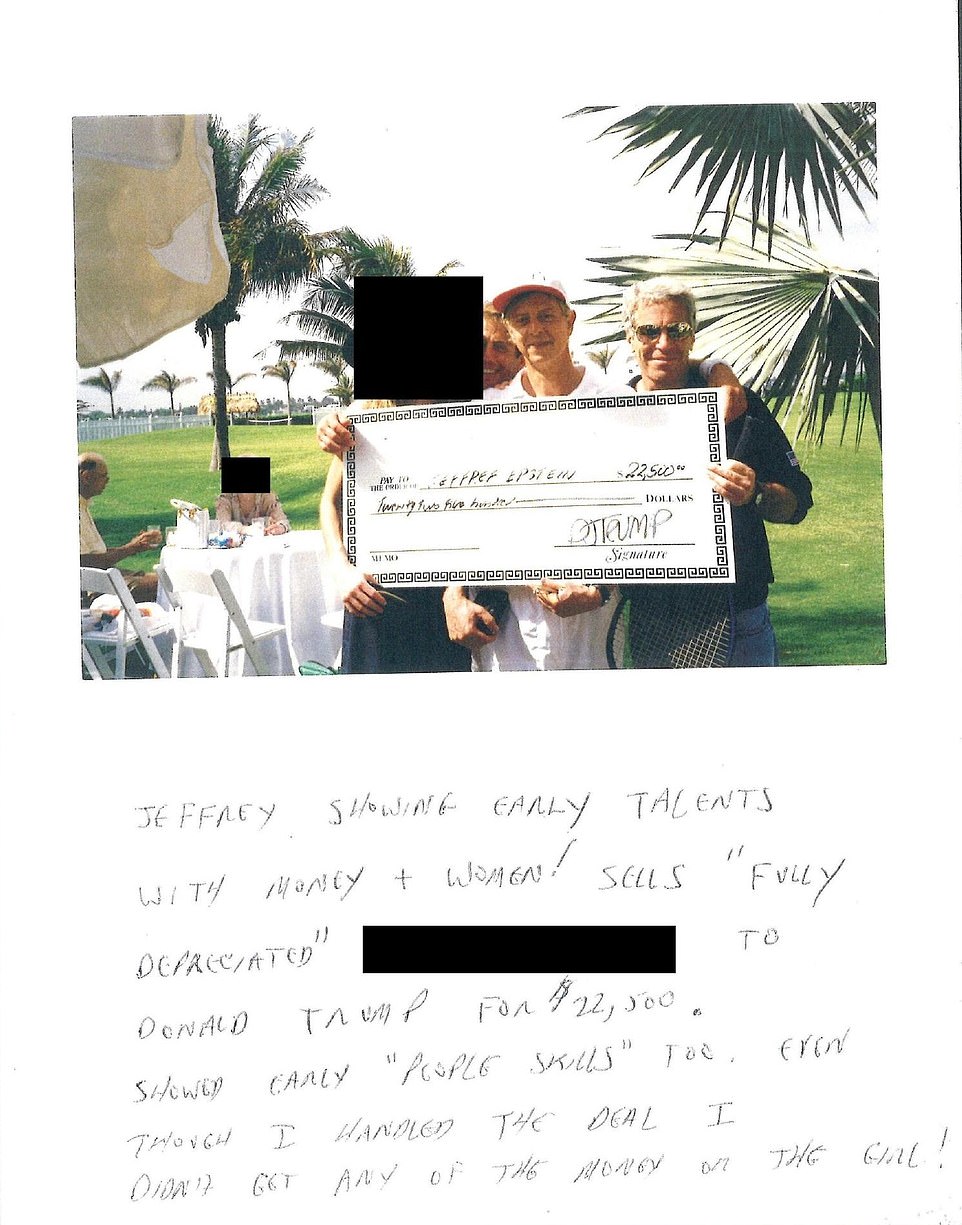 PAY TO
THE ORDER OF JEFFREY EPSTEIN $22,500⁰⁰
Twenty two five hundred DOLLARS
DJTRUMP
MEMO Signature
JEFFREY SHOWING EARLY TALENTS
WITH MONEY + WOMEN! SELLS "FULLY
DEPRECIATED" TO
DONALD TRUMP FOR $22,500.
SHOWED EARLY "PEOPLE SKILLS" TOO. EVEN
THOUGH I HANDLED THE DEAL I
DIDN'T GET ANY OF THE MONEY OR THE GIRL!